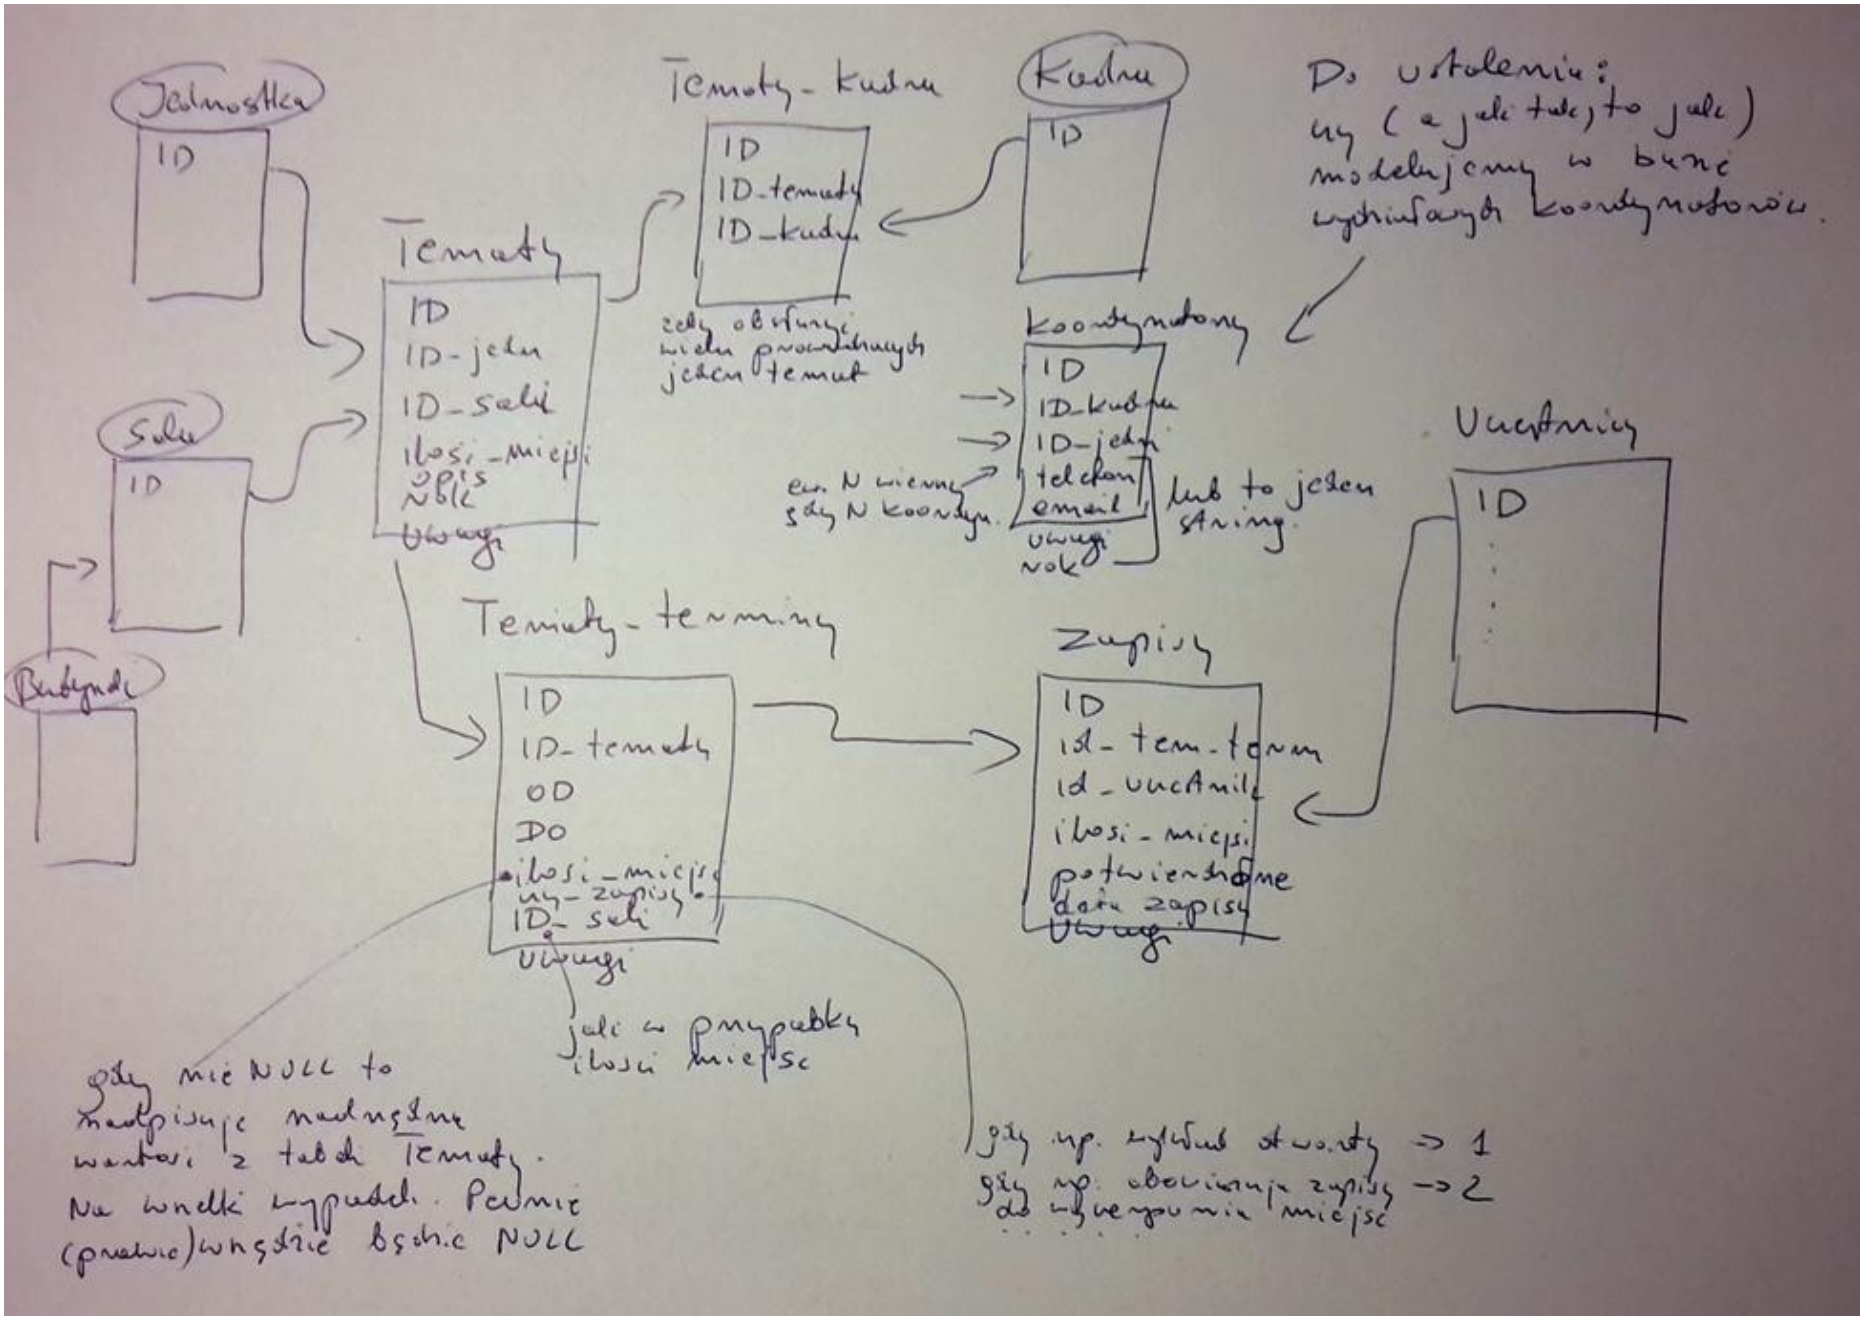 Jednostka
ID
Sala
ID
Budynek
Tematy
ID
ID-jedn
ID-sali
ilość-miejsc
opis
rok
Uwagi
Tematy-kadra
ID
ID-tematy
ID-kadra
żeby obsłużyć
wielu prowadzących
jeden temat
Kadra
ID
Do ustalenia:
czy (a jak tak, to jak)
modelujemy w bazie
wydziałowych koordynatorów.
Koordynatorzy
ID
ID-kadra
ID-jedn
telefon
email
uwagi
rok
ew. N wierszy
gdy N koordyn.
lub to jeden
string.
Uczestnicy
ID
Tematy-terminy
ID
ID-tematy
OD
DO
ilość-miejsc
czy-zapisy
ID-sali
Uwagi
jak w przypadku
ilości miejsc
Zapisy
ID
id-tem-term
id-uczestnik
ilość-miejsc
potwierdzone
data zapisy
Uwagi
gdy nie NULL to
nadpisuje nadrzędną
wartość z tabeli Tematy.
Na wszelki wypadek. Pewnie
(prawie) wszędzie będzie NULL
gdy np. wykład otwarty → 1
gdy np. obowiązują zapisy → 2
do wyczerpania miejsc
. . . . . .